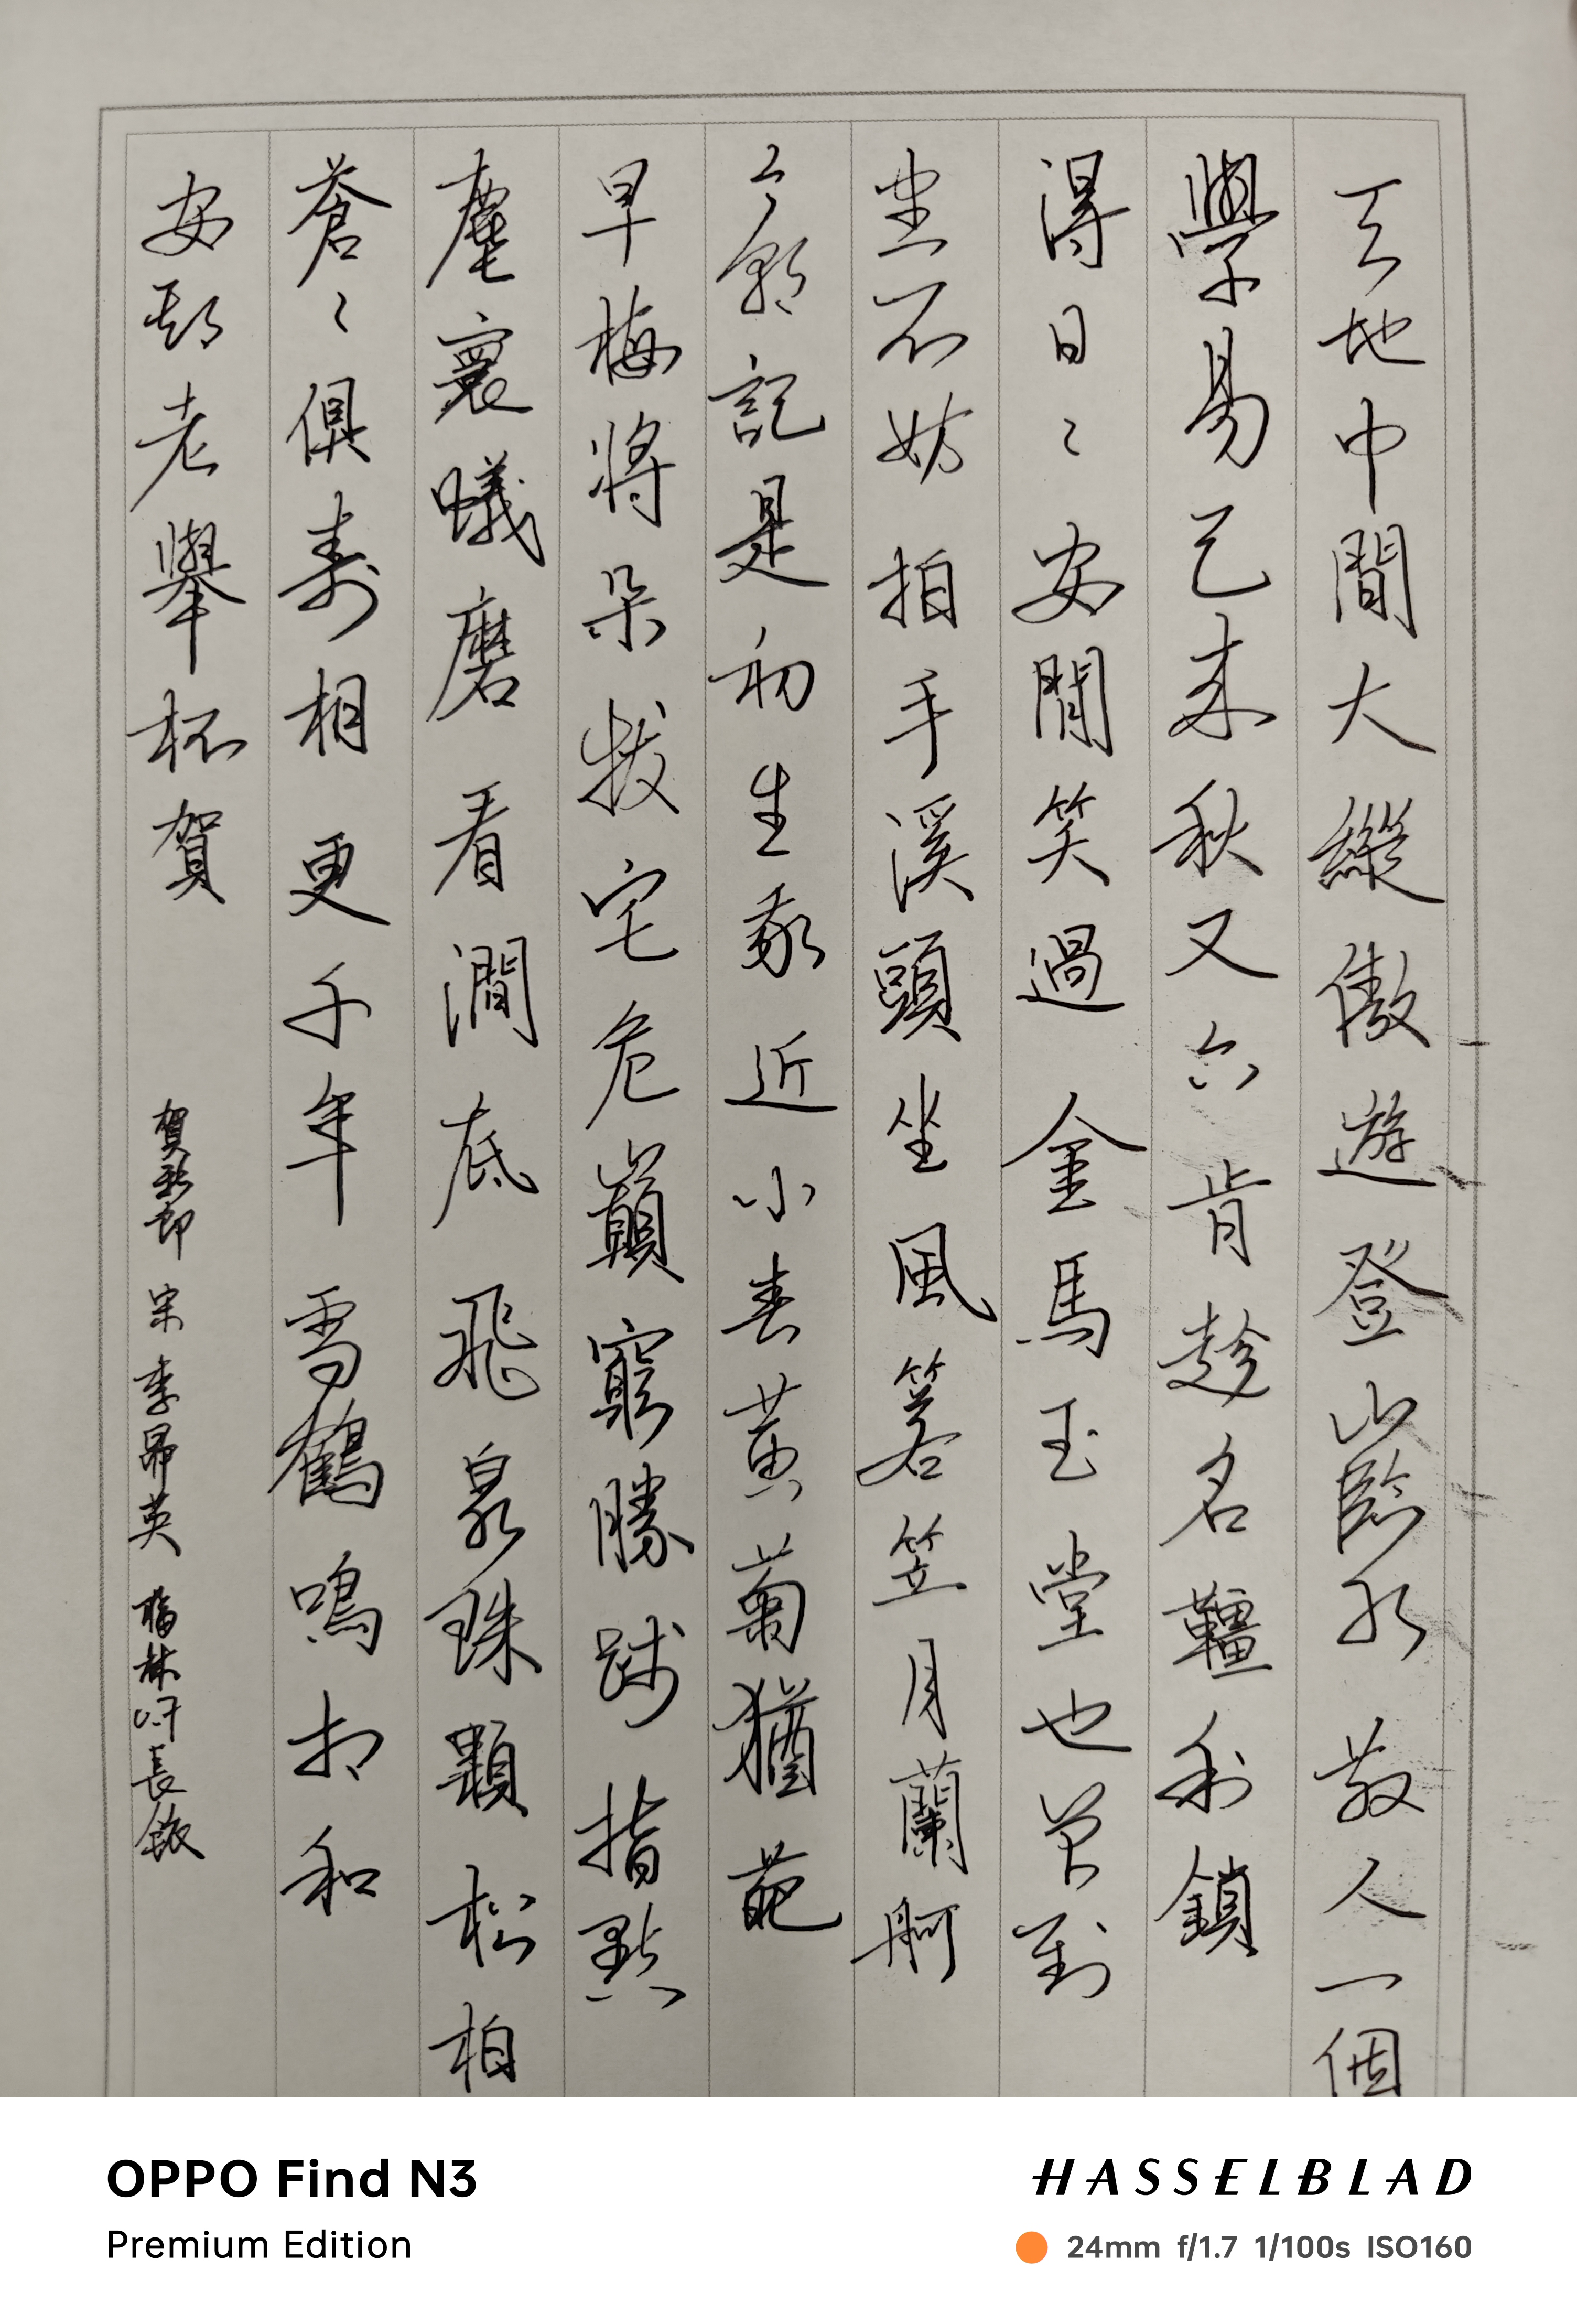 天地中間大縱傲遊登山臨水散人一個
學易已來秋又六肯趁名韁利鎖
得日〻安閒笑過金馬玉堂也曾到
盡不妨拍手溪頭坐風箬笠月蘭舸
今朝記是初生我近小春黃菊猶葩
早梅將朵拔宅危巔窮勝踐指點
塵寰蟻磨看澗底飛泉珠顆松柏
蒼〻俱壽相更千年雪鶴鳴相和
安期老舉杯賀 賀新郎 宋 李昴英
OPPO Find N3
Premium Edition
HASSELBLAD
24mm f/1.7 1/100s ISO160